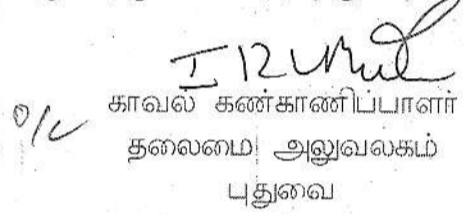 O/C காவல் கண்காணிப்பாளர்
தலைமை அலுவலகம்
புதுவை